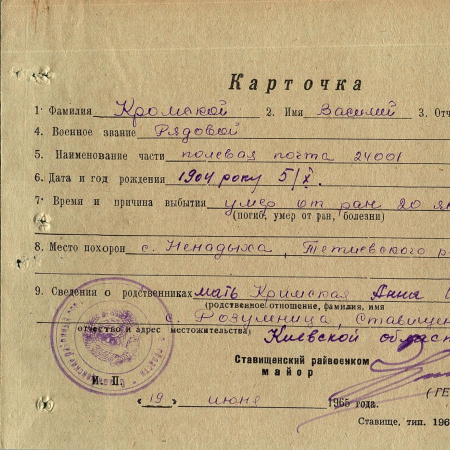 Карточка
1. Фамилия Кромской 2. Имя Василий 3. Отч
4. Военное звание Рядовой
5. Наименование части полевая почта 24001
6. Дата и год рождения 1904 року 5/X.
7. Время и причина выбытия умер от ран 20 ян
(погиб, умер от ран, болезни)
8. Место похорон с. Ненадыха, Тетиевского р
9. Сведения о родственниках мать Кримская Анна
(родственное отношение, фамилия, имя
с. Розумница, Ставищен
отчество и адрес местожительства) Киевской област
Ставищенский райвоенком
майор
И. П.
(ГЕ
„19" июня 1965 года.
Ставище, тип. 196